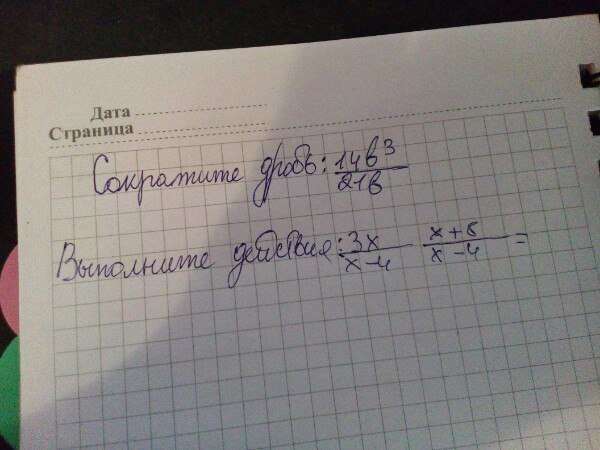 Дата
Страница
Сократите дробь: 14b³/21b
Выполните действия: 3x/x-4 x+8/x-4 =